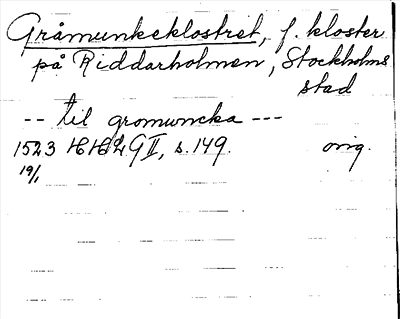 Gråmunkeklostret, f. kloster
på Riddarholmen, Stockholms
stad
-- til gromuncka ---
1523 HH2 G II, s. 149. orig.
19/1